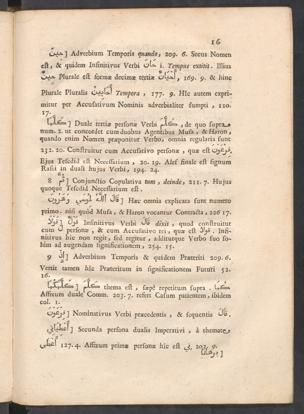 16
حِينَ ] Adverbium Temporis quando, 209. 6. Secus Nomen
est, & quidem Infinitivus Verbi حَانَ i. Tempus extitit. Illius
حِينٌ Plurale est formæ decimæ tertiæ أَحْيَانٌ, 169. 9. & hinc
Plurale Pluralis أَحَايِينُ Tempora, 177. 9. HIc autem expri-
mitur per Accusativum Nominis adverbialiter sumpti, 120.
17.
كَلَّمَا ] Duale tertiæ personæ Verbi كَلَّمَ, de quo supra
num. 2. ut concordet cum duobus Agentibus Musa, & Haron,
quando enim Nomen præponitur Verbo, omnia regularia sunt
232. 20. Construitur cum Accusativo personæ, qua est فِرْعَوْنَ.
Ejus Tesedid est Necessarium, 20. 19. Alef finale est signum
Rafii in duali hujus Verbi, 194. 24.
8 ثُمَّ ] Conjunctio Copulativa tum, deinde, 211. 7. Hujus
quoque Tesedid Necessarium est.
قَالَ ٱللَّهُ لِمُوسَى وَهَرُونَ ] Hæc omnia explicata sunt numero
primo. nisi quòd Musa, & Haron vocantur Contracta, 206 17.
قَوْلًا ] قَوْلٌ Infinitivus Verbi قَالَ dixit, quod construitur
cum لِ personæ, & cum Accusativo rei, quæ est قَوْلًا. Infi-
nitivus hic non regit, sed regitur, additurque Verbo suo so-
lùm ad augendam significationem, 254. 15.
9 إِذْ ] Adverbium Temporis & quidem Præteriti 209. 6.
Vertit tamen hìc Præteritum in significationem Futuri 52.
16.
كَلَّمْتُمَا ] كَلَّمَ thema est, sæpè repetitum supra.
Affixum duale Comm. 203. 7. refert Casum patientem, ibidem
col. 1.
فِرْعَوْنُ ] Nominativus Verbi præcedentis, & sequentis قَالَ.
أَعْطِيَانِي ] Secunda persona dualis Imperativi, à themate
أَعْطَى 127. 4. Affixum primæ personæ hìc est نِي 203. 9.
بُرْهَانًا ]